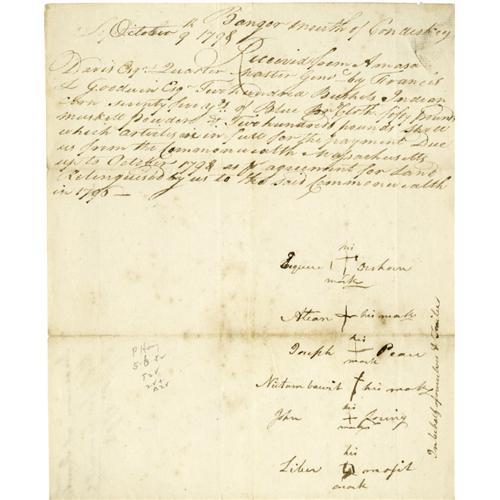 Bangor mouth of Condeskeeg
October 9th 1798
Received from Amasa
Davis Esqr Quarter Master Genl by Francis
L Goodwin Esqr Two hundred Bushels Indian
Corn Seventy five yds of Blue Cloth fifty Pounds
musket Powder & Two hundred pounds Shot
which articles is in full for the payment Due
us from the Commonwealth Massachusetts
up to October 1798 as pr agreement for Land
Relinquished by us to the said Commonwealth
in 1796 —
his
Esquire + Orshorn
mark
Atean + his mark
his
Joseph + Pease
mark
+ his mark
his
John + Loring
mark
his
mark
In behalf of ourselves & Tribe